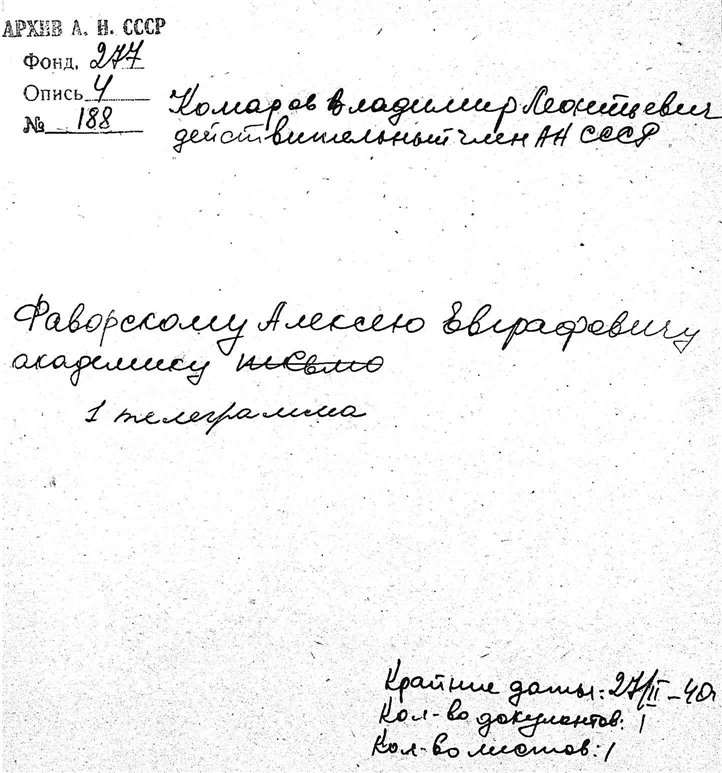 АРХИВ А. Н. СССР
Фонд. 277
Опись 4
№ 188
Комаров Владимир Леонтьевич
действительный член АН СССР
Фаворскому Алексею Евграфовичу
академику письмо
1 телеграмма
Крайние даты: 27/II-40г
Кол-во документов: 1
Кол-во листов: 1